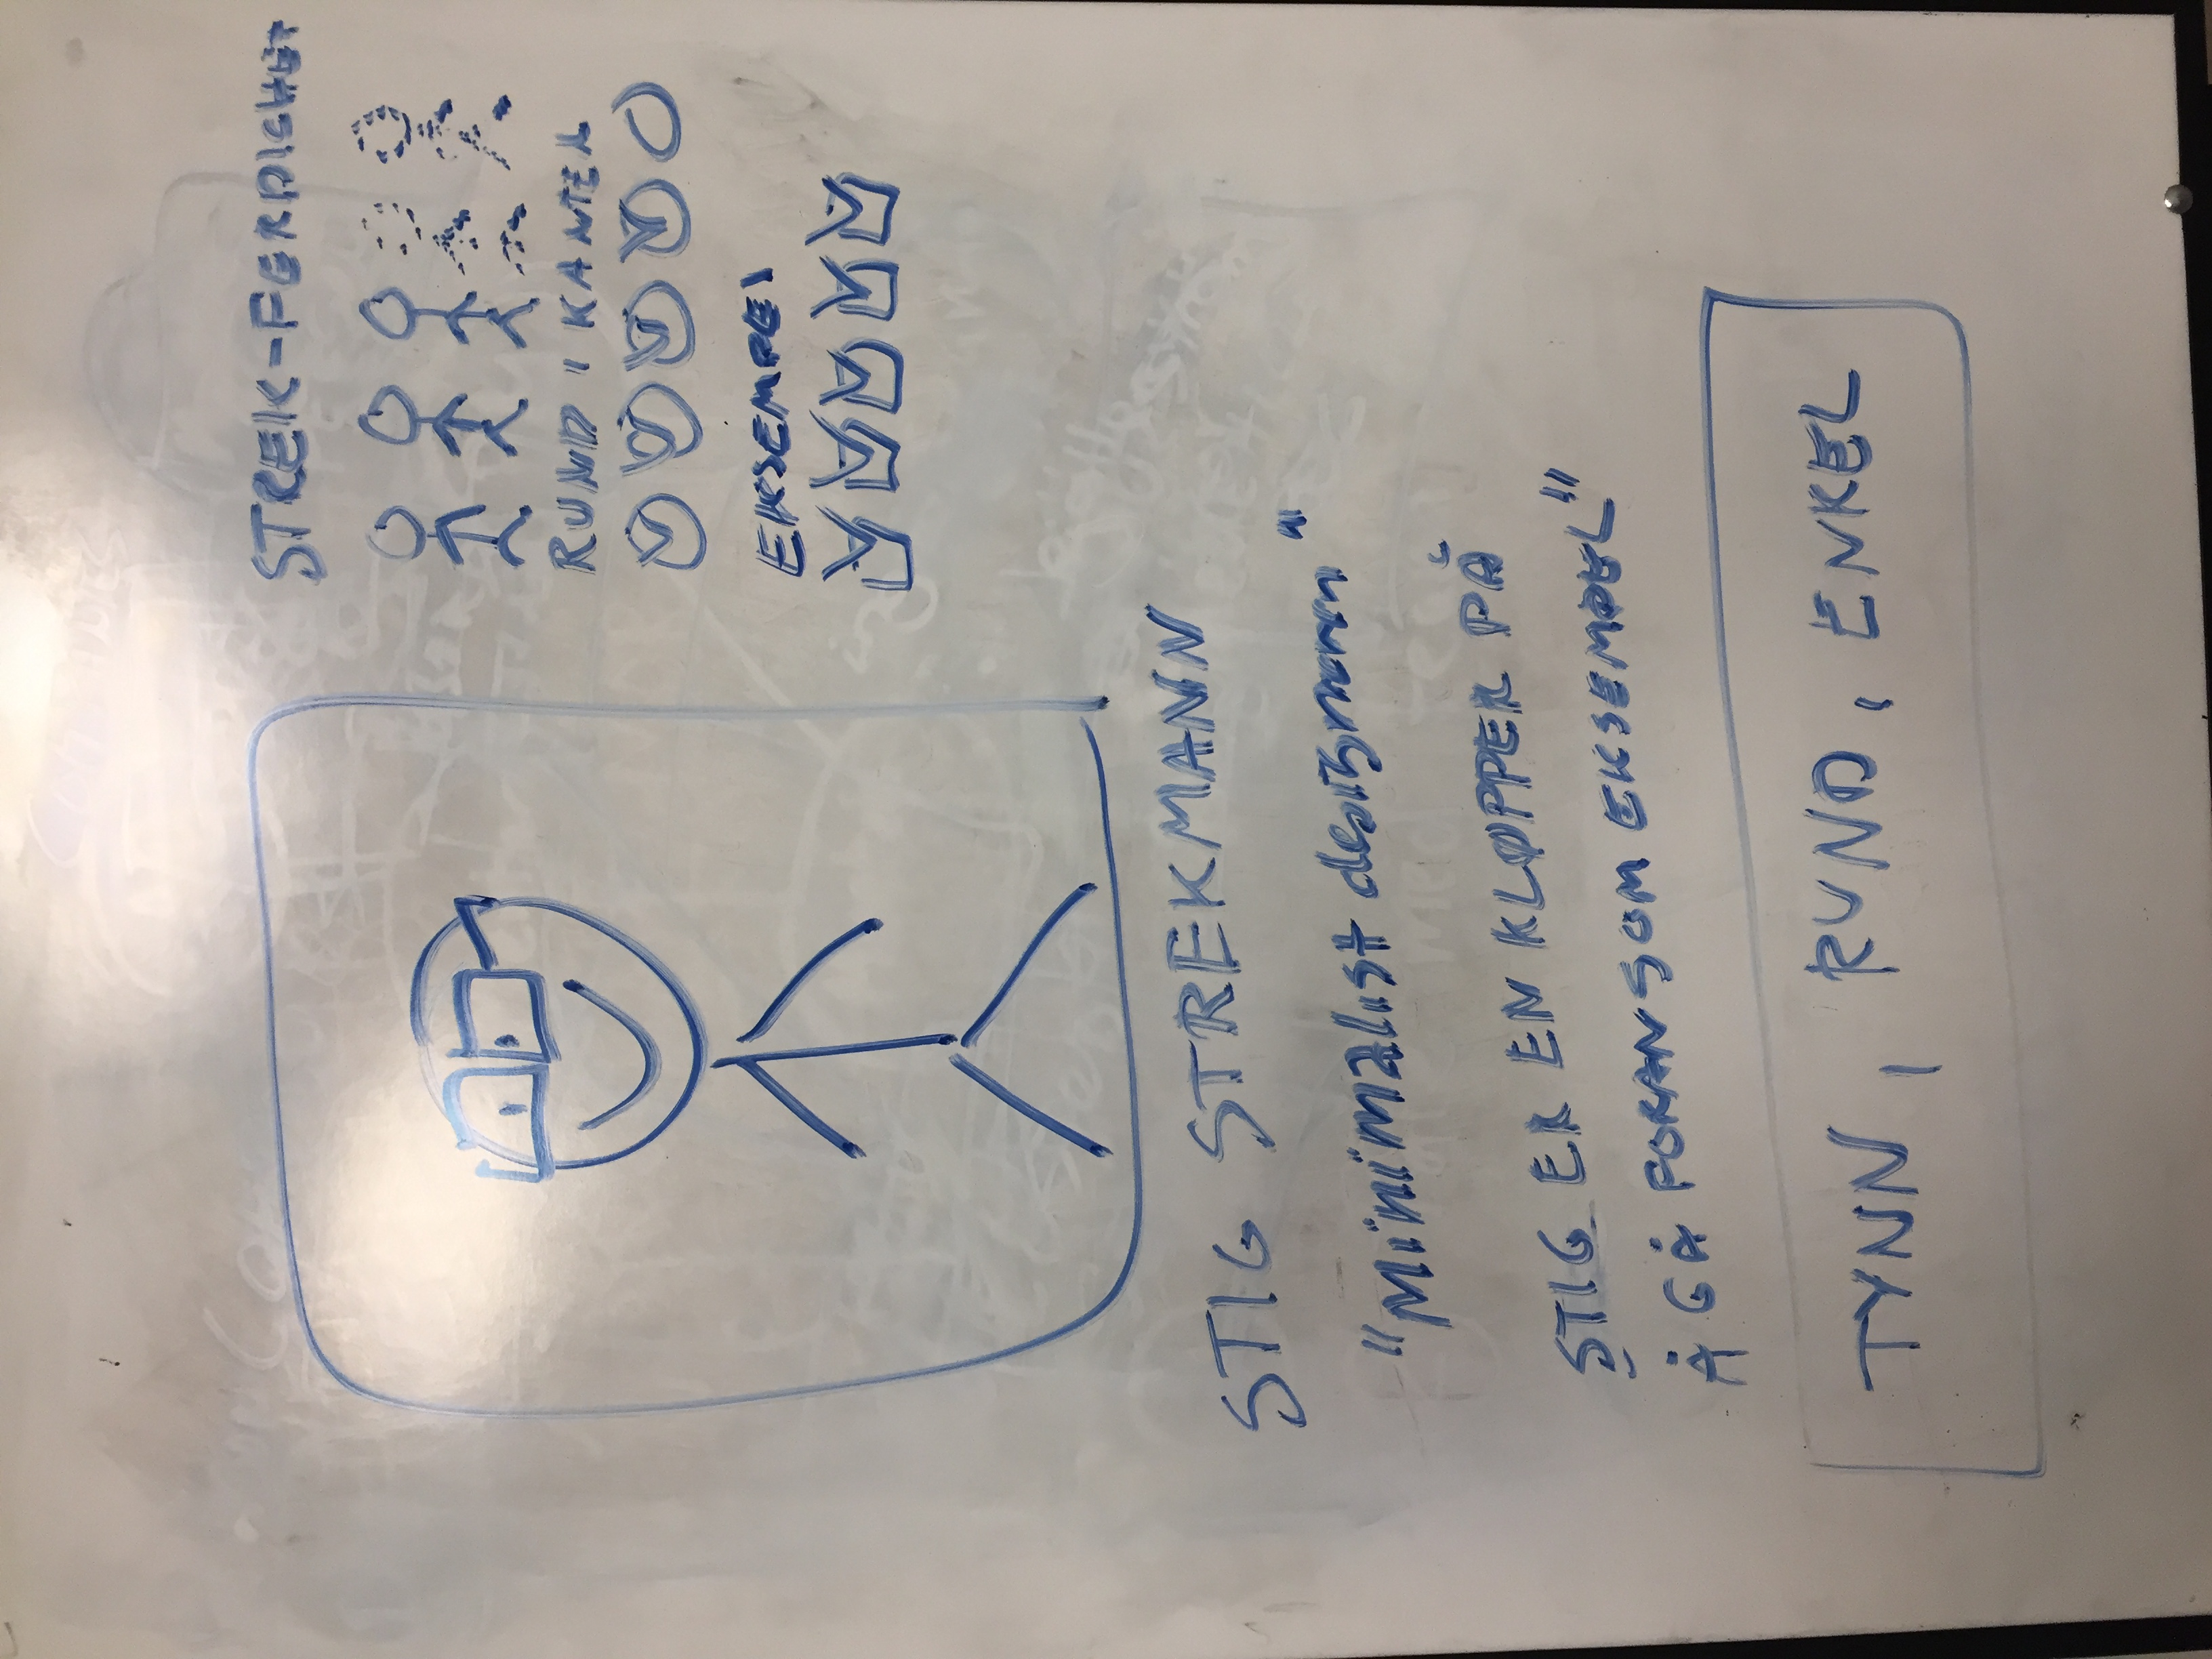 STREK-FERDIGHET
RUND I KANTEN
EKSEMPEL
STIG STREKMANN
"Minimalist designmann"
STIG ER EN KLØPPER PÅ
Å GÅ FORAN SOM EKSEMPEL"
TYNN, RUND, ENKEL